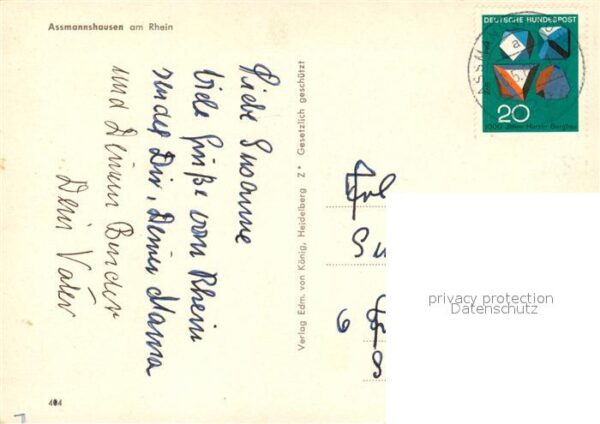 Assmannshausen am Rhein
Liebe Susanne
viele Grüße vom Rhein
sendet Dir, Deiner Mama
und Deinem Bruder
Dein Vater
Verlag Edm. von König, Heidelberg Z* Gesetzlich geschützt
DEUTSCHE BUNDESPOST
20
1000 Jahre Harzer Bergbau
ASSMA
Frl
Su
6 F
privacy protection
Datenschutz
404